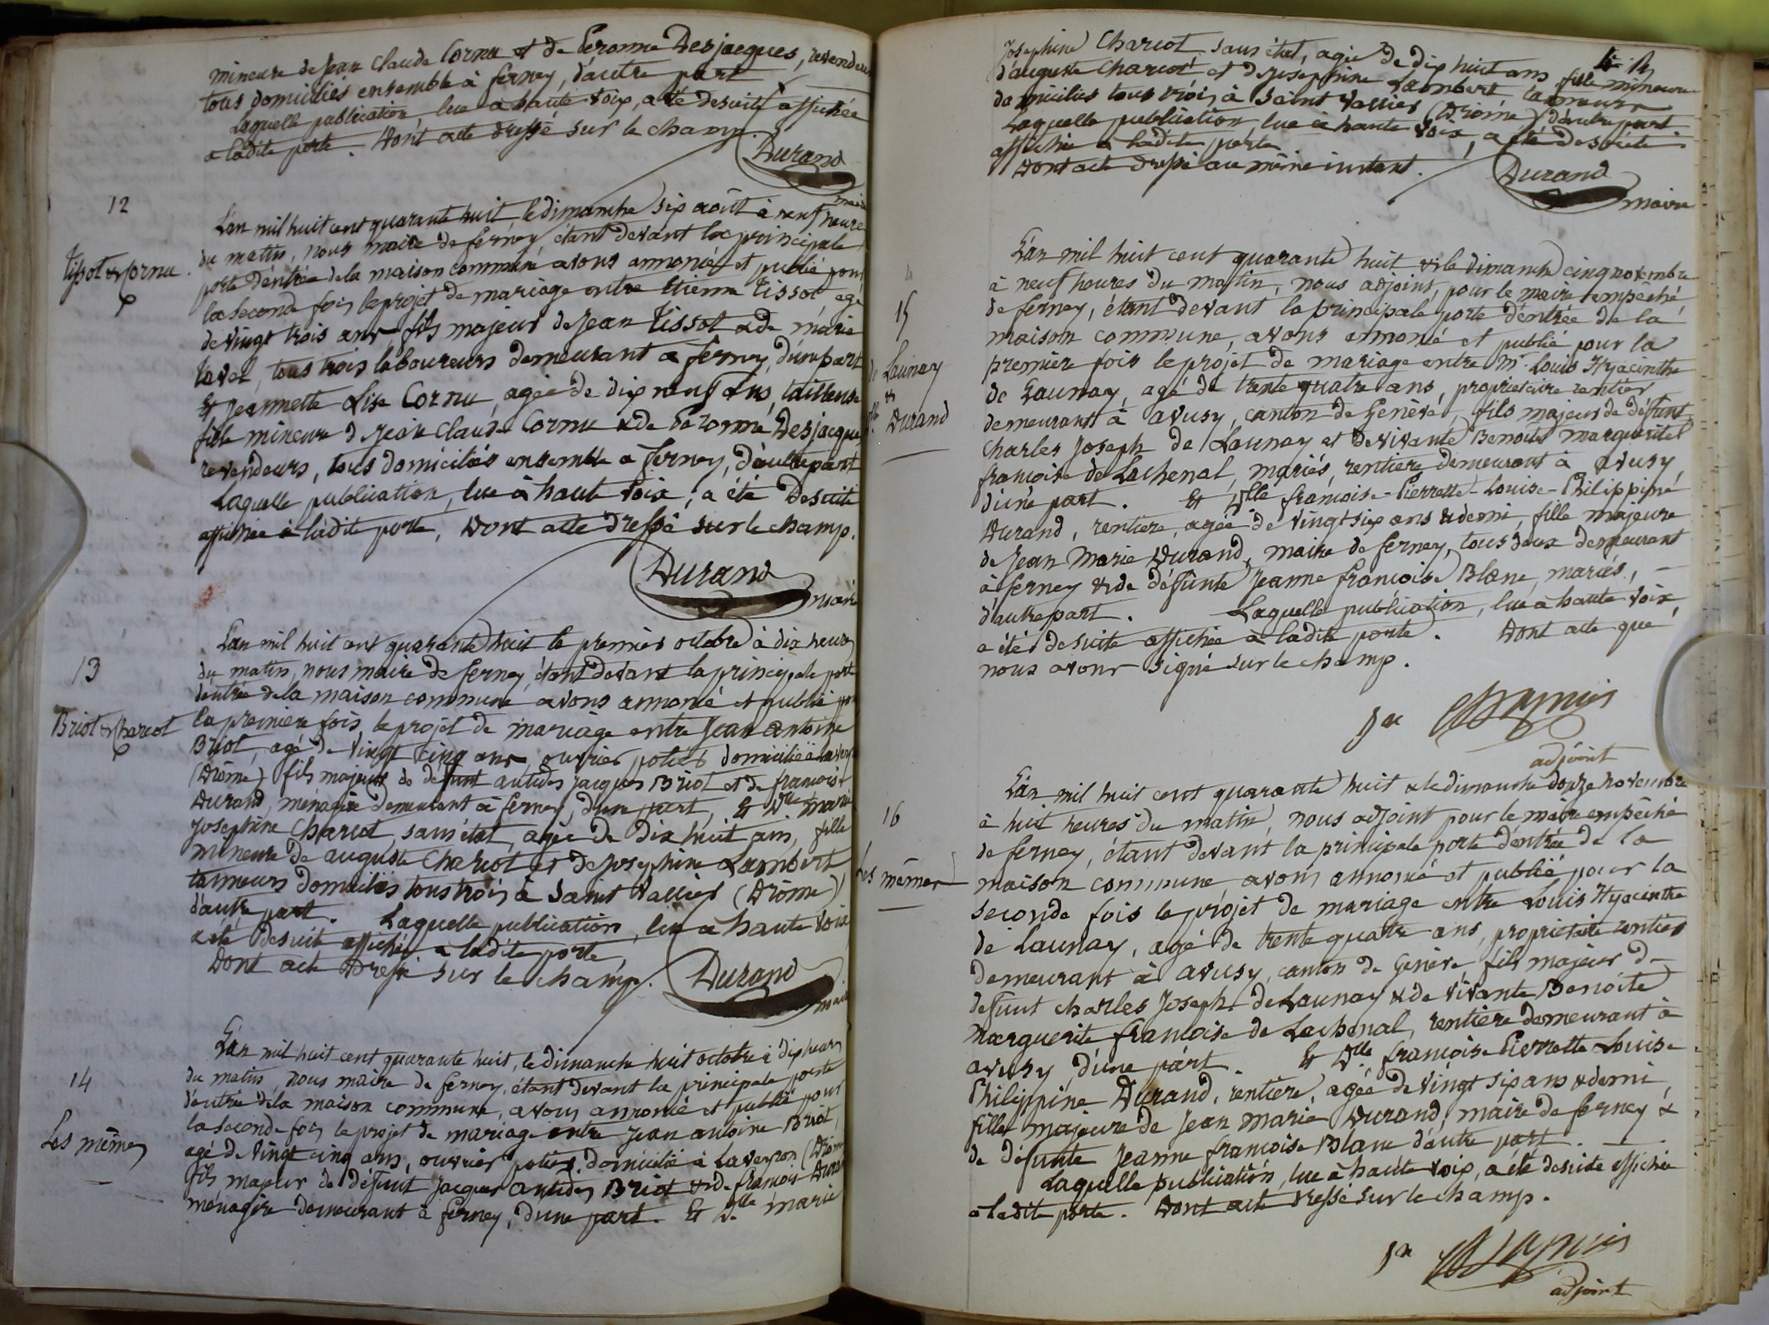 mineure de Jean Claude Cornu et de Peronne Desjacques, revendeurs
tous domiciliés ensemble à ferney, d'autre part
Laquelle publication, lue à haute voix, a été desuite affichée
a ladite porte. Dont acte dressé sur le champ.
Durand
maire
12
Tissot & Cornu
L'an mil huit cent quarante huit le dimanche six août à neuf heures
du matin, nous maire de ferney, étant devant la principale
porte d'entrée de la maison commune avons annoncé et publié pour
la seconde fois le projet de mariage entre Etienne Tissot agé
de vingt trois ans, fils majeur de Jean Tissot & de marie
tous trois laboureurs demeurant a ferney, d'une part
Et Jeannette Lise Cornu, agée de dix neuf ans, tailleuse
fille mineure de Jean Claude Cornu & de Peronne Desjacques
revendeurs, tous domiciliés ensemble a ferney, d'autre part
Laquelle publication, lue à haute voix, a été desuite
affichée à ladite porte, Dont acte dressé sur le champ.
Durand
maire
13
Briot & Charcot
L'an mil huit cent quarante huit le premier octobre à dix heures
du matin, nous maire de ferney, étant devant la principale porte
d'entrée de la maison commune avons annoncé et publié pour
la première fois, le projet de mariage entre Jean antoine
Briot, agé de vingt cinq ans, ouvrier potier domicilié à Laveyron
(Drôme) fils majeur de défunt antides Jacques Briot et de francoise
Durand, ménagère demeurant à ferney, d'une part, Et Dlle marie
Josephine Charcot, sans état, agée de dix huit ans, fille
mineure de auguste Charcot et de Josephine Lambert
tanneurs domiciliés tous trois à Saint Vallier (Drôme)
d'autre part. Laquelle publication, lue à haute voix
a été desuite affichée a ladite porte,
Dont acte dressé sur le champ.
Durand
maire
14
Les mêmes
L'an mil huit cent quarante huit, le dimanche huit octobre à dix heures
du matin, nous maire de ferney, étant devant la principale porte
d'entrée de la maison commune, avons annoncé et publié pour
la seconde fois le projet de mariage entre Jean antoine Briot,
agé de vingt cinq ans, ouvrier potier domicilié à Laveyron (Drôme)
fils majeur de défunt Jacques antides Briot & de francoise Durand
ménagère demeurant à ferney, d'une part. Et Dlle marie
Josephine Charcot sans état, agée de dix huit ans fille mineure
d'auguste Charcot et de Josephine Lambert tanneurs
domiciliés tous trois à Saint Vallier (Drôme) d'autre part.
Laquelle publication lue à haute voix, a été desuite
affichée a ladite porte
Dont acte dressé au même instant.
Durand
maire
15
de Launay
&
Dlle Durand
L'an mil huit cent quarante huit & le dimanche cinq novembre
à neuf heures du matin, nous adjoint, pour le maire empêché
de ferney, étant devant la principale porte d'entrée de la
maison commune, avons annoncé et publié pour la
première fois le projet de mariage entre Mr Louis Hyacinthe
de Launay, agé de trente quatre ans, propriétaire rentier
demeurant à avusy, canton de Genève, fils majeur de défunt
Charles Joseph de Launay et de vivante Benoite marguerite
francoise de Lachenal, mariés, rentière demeurant à avusy,
d'une part. Et Dlle francoise-Pierrette-Louise-Philippine
Durand, rentière, agée de vingt six ans & demi, fille majeure
de Jean Marie Durand, maire de ferney, tous deux demeurant
à ferney & de défunte Jeanne francoise Blanc, mariés, —
d'autre part. Laquelle publication, lue à haute voix,
a été desuite affichée à ladite porte. Dont acte que
nous avons signé sur le champ.
adjoint
16
Les mêmes
L'an mil huit cent quarante huit & le dimanche douze novembre
à huit heures du matin, nous adjoint pour le maire empêché
de ferney, étant devant la principale porte d'entrée de la
maison commune, avons annoncé et publié pour la
seconde fois le projet de mariage entre Louis Hyacinthe
de Launay, agé de trente quatre ans, propriétaire rentier
demeurant à avusy, canton de Genève, fils majeur de
defunt Charles Joseph de Launay & de vivante Benoite
Marguerite francoise de Lachenal, rentière demeurant à
avusy, d'une part. Et Dlle francoise Pierrette Louise
Philippine Durand, rentière, agée de vingt six ans & demi,
fille majeure de Jean Marie Durand, maire de ferney &
de défunte Jeanne francoise Blanc d'autre part. —
Laquelle publication, lue à haute voix, a été desuite affichée
a ladite porte. Dont acte dressé sur le champ.
adjoint